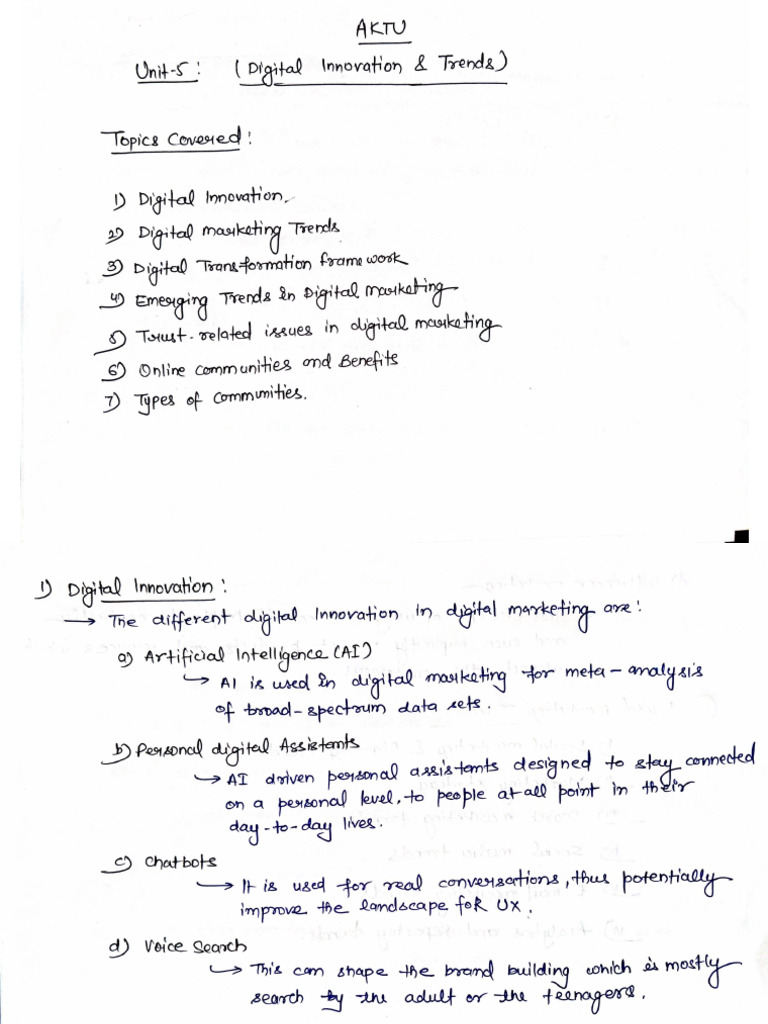 AKTU
Unit-5: (Digital Innovation & Trends)
Topics Covered:
1) Digital Innovation.
2) Digital marketing Trends
3) Digital Transformation framework
4) Emerging Trends in Digital marketing
5) Trust-related issues in digital marketing
6) Online communities and Benefits
7) Types of Communities.
1) Digital Innovation:
→ The different digital Innovation in digital marketing are:
a) Artificial Intelligence (AI)
↳ AI is used in digital marketing for meta-analysis
of broad-spectrum data sets.
b) Personal digital Assistants
↳ AI driven personal assistants designed to stay connected
on a personal level, to people at all point in their
day-to-day lives.
c) Chatbots
↳ It is used for real conversations, thus potentially
improve the landscape foR UX.
d) Voice Search
↳ This can shape the brand building which is mostly
search by the adult or the teenagers.